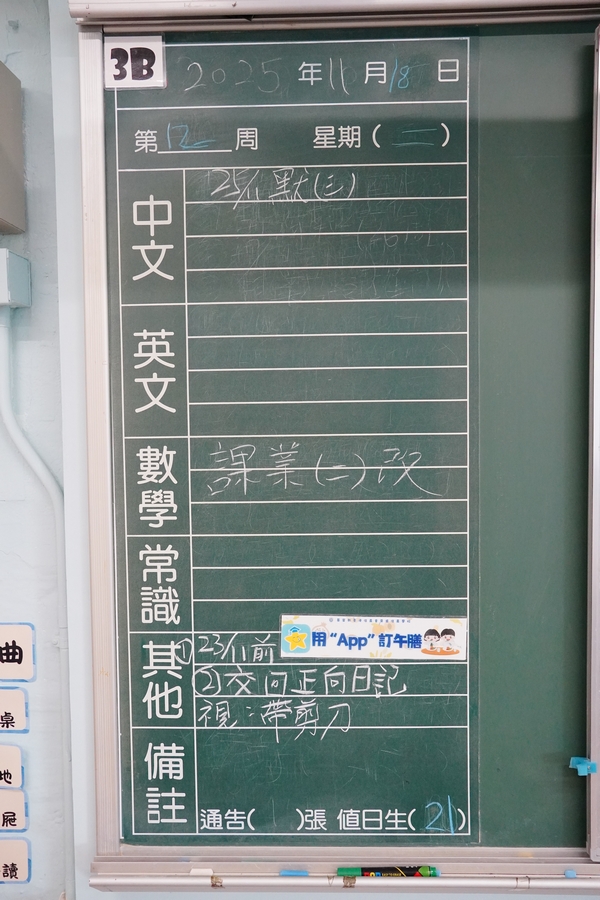 3B 2025年11月18日
第12周 星期(二)
中文 25/11 默(三)
英文
數學 課業(二)改
常識
其他 ①23/11前 用“App”訂午膳
②交回正向日記
視:帶剪刀
備註
通告( )張 值日生(21)
曲
桌
地
讀